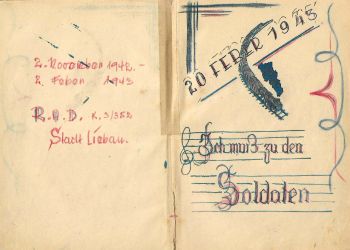 2. November 1942.-
2. Feber 1943
R.A.D. K. 3/352
Stadt Liebau.
20 FEBER 1943
Ich muß zu den
Soldaten